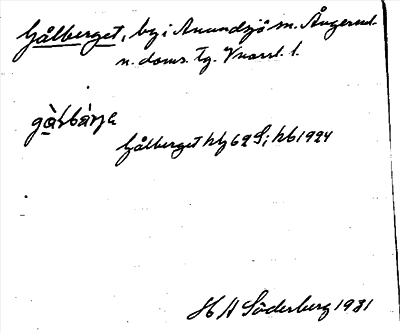 Gålberget, by i Anundsjö sn. Ångerml.
n. doms. tg. Vnorrl. l.
gàḷbárjə
Gålberget hly 62 S; hb 1924
H A Söderberg 1931